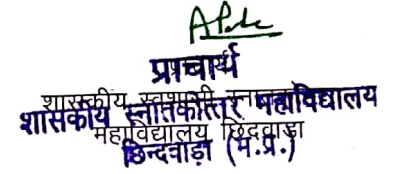 प्राचार्य
शासकीय स्वशासी
शासकीय स्नातकोत्तर महाविद्यालय
महाविद्यालय छिंदवाड़ा
छिन्दवाड़ा (म.प्र.)